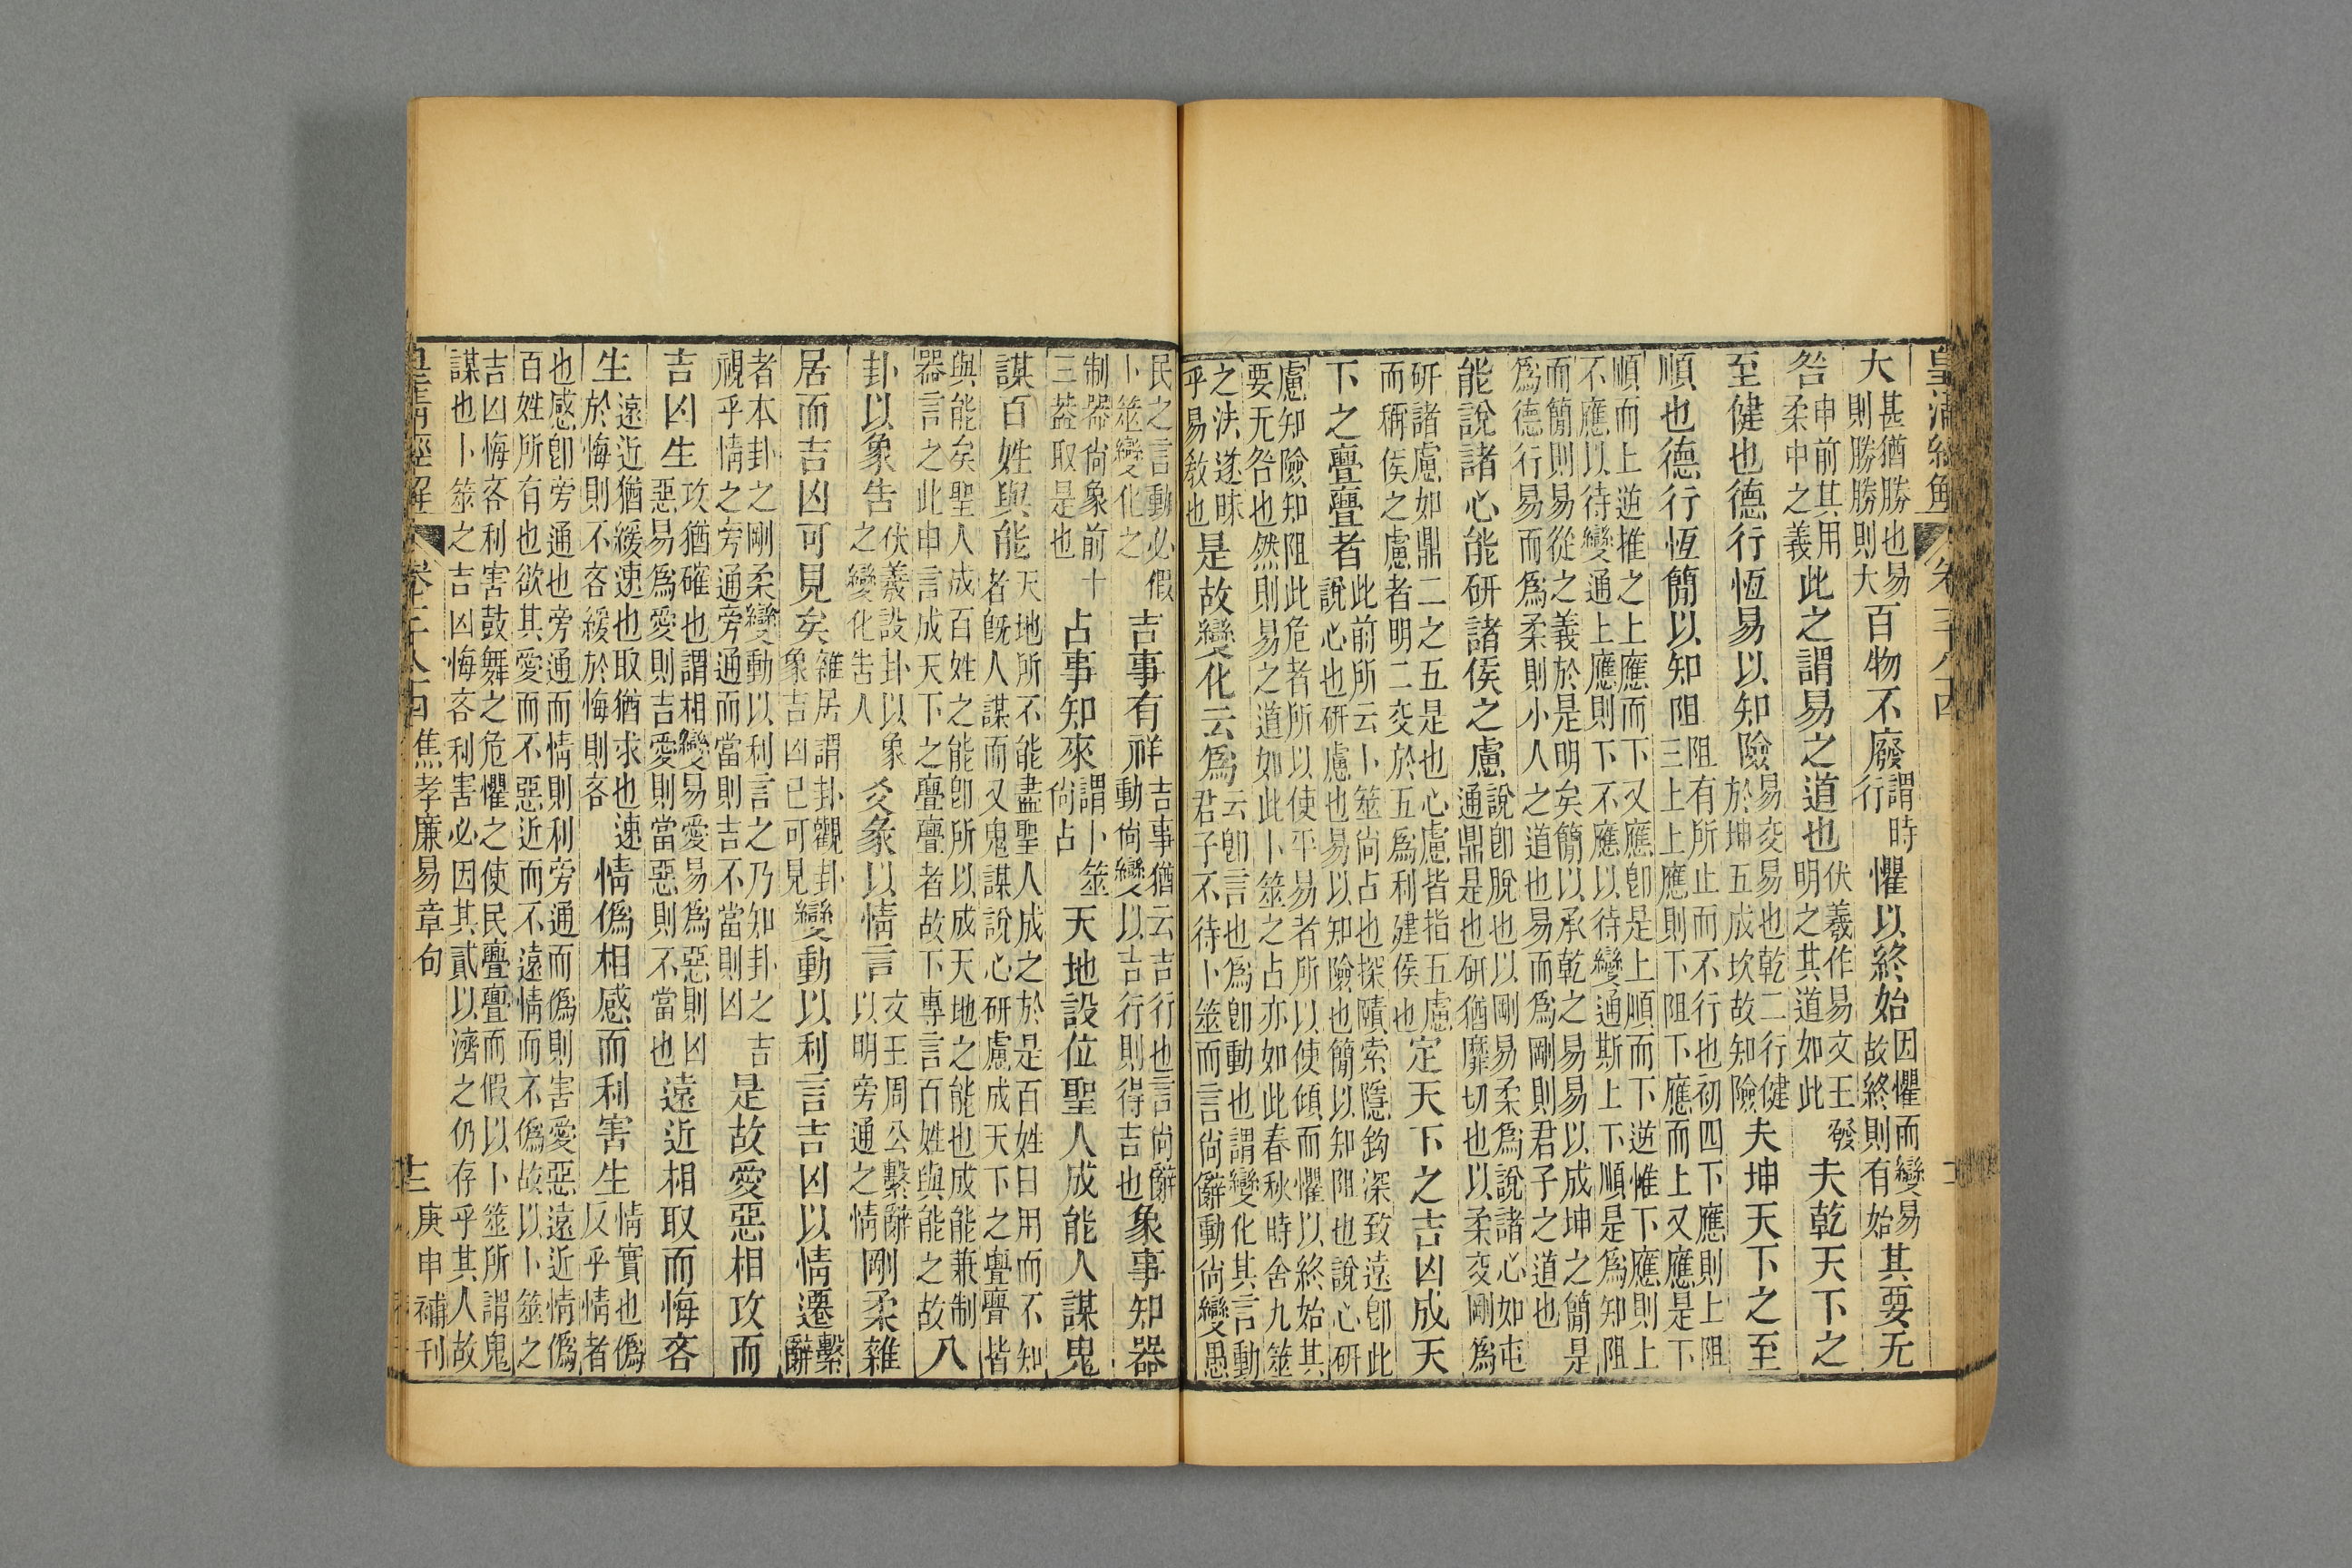 皇清經解 卷千八十四
大甚猶勝也易則勝勝則大百物不廢謂時行懼以終始因懼而變易故終則有始其要无
咎申前其用柔中之義此之謂易之道也伏羲作易文王發明之其道如此夫乾天下之
至健也德行恆易以知險易交易也乾二行健於坤五成坎故知險夫坤天下之至
順也德行恆簡以知阻阻有所止而不行也初四下應則上阻三上上應則下阻下應而上又應是下
順而上逆推之上應而下又應卽是上順而下逆惟下應則上不應以待變通上應則下不應以待變通斯上下順是爲知阻
而簡則易從之義於是明矣簡以承乾之易易以成坤之簡是爲德行易而爲柔則小人之道也易而爲剛則君子之道也
能說諸心能研諸侯之慮說卽脫也以剛易柔爲說諸心如屯通鼎是也研猶靡切也以柔交剛爲
研諸慮如鼎二之五是也心慮皆指五慮而稱侯之慮者明二交於五爲利建侯也定天下之吉凶成天
下之亹亹者此前所云卜筮尚占也探賾索隱鈎深致遠卽此說心也研慮也易以知險也簡以知阻也說心研
慮知險知阻此危者所以使平易者所以使傾而懼以終始其要无咎也然則易之道如此卜筮之占亦如此春秋時舍九筮
之法遂昧乎易敎也是故變化云爲云卽言也爲卽動也謂變化其言動君子不待卜筮而言尚辭動尚變愚
民之言動必假卜筮變化之吉事有祥吉事猶云吉行也言尚辭動尚變以吉行則得吉也象事知器
制器尚象前十三蓋取是也占事知來謂卜筮尚占天地設位聖人成能人謀鬼
謀百姓與能天地所不能盡聖人成之於是百姓日用而不知者旣人謀而又鬼謀說心研慮成天下之亹亹皆
與能矣聖人成百姓之能卽所以成天地之能也成能兼制器言之此申言成天下之亹亹者故下專言百姓與能之故八
卦以象告伏羲設卦以象之變化告人爻彖以情言文王周公繫辭以明旁通之情剛柔雜
居而吉凶可見矣雜居謂卦觀卦象吉凶已可見變動以利言吉凶以情遷繫辭
者本卦之剛柔變動以利言之乃知卦之吉視乎情之旁通旁通而當則吉不當則凶是故愛惡相攻而
吉凶生攻猶確也謂相變易愛易爲惡則凶惡易爲愛則吉愛則當惡則不當也遠近相取而悔吝
生遠近猶緩速也取猶求也速於悔則不吝緩於悔則吝情僞相感而利害生情實也僞反乎情者
也感卽旁通也旁通而情則利旁通而僞則害愛惡遠近情僞百姓所有也欲其愛而不惡近而不遠情而不僞故以卜筮之
吉凶悔吝利害鼓舞之危懼之使民亹亹而假以卜筮所謂鬼謀也卜筮之吉凶悔吝利害必因其貳以濟之仍存乎其人故
皇清經解 卷千八十四 焦孝廉易章句 十三 庚申補刊